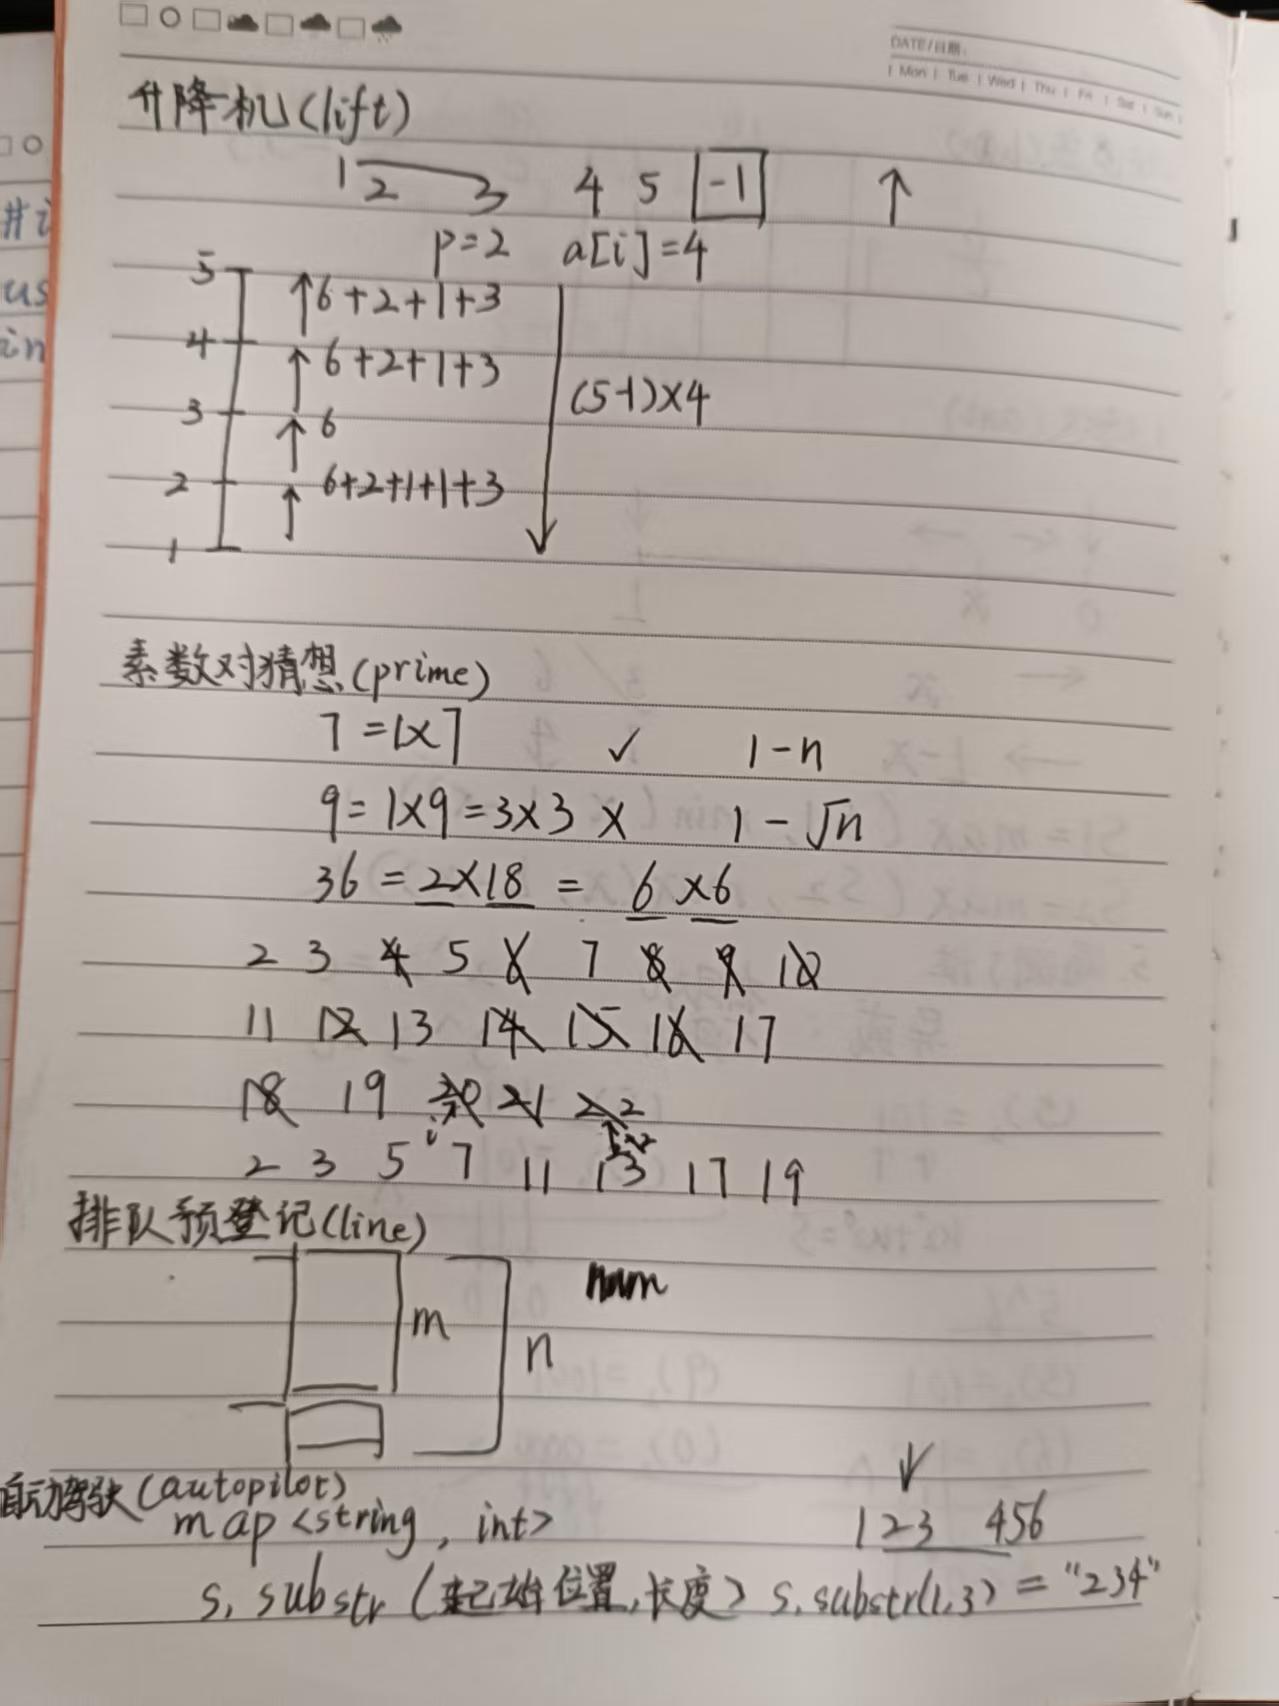 DATE/日期:
Mon | Tue | Wed | Thu | Fri | Sat | Sun
升降机(lift)
1 2 3 4 5 -1
p=2 a[i]=4
5 6+2+1+3
4 6+2+1+3
(5-1)×4
3 6
2 6+2+1+1+3
1
素数对猜想(prime)
7=1×7 ✓ 1-n
9=1×9=3×3 × 1-√n
36=2×18=6×6
2 3 4 5 6 7 8 9 10
11 12 13 14 15 16 17
18 19 20 21 22
i
2 3 5 7 11 13 17 19
排队预登记(line)
num
m
n
自动驾驶(autopilot)
map<string, int> 123 456
s.substr(起始位置,长度) s.substr(1,3)="234"
#i
us
in